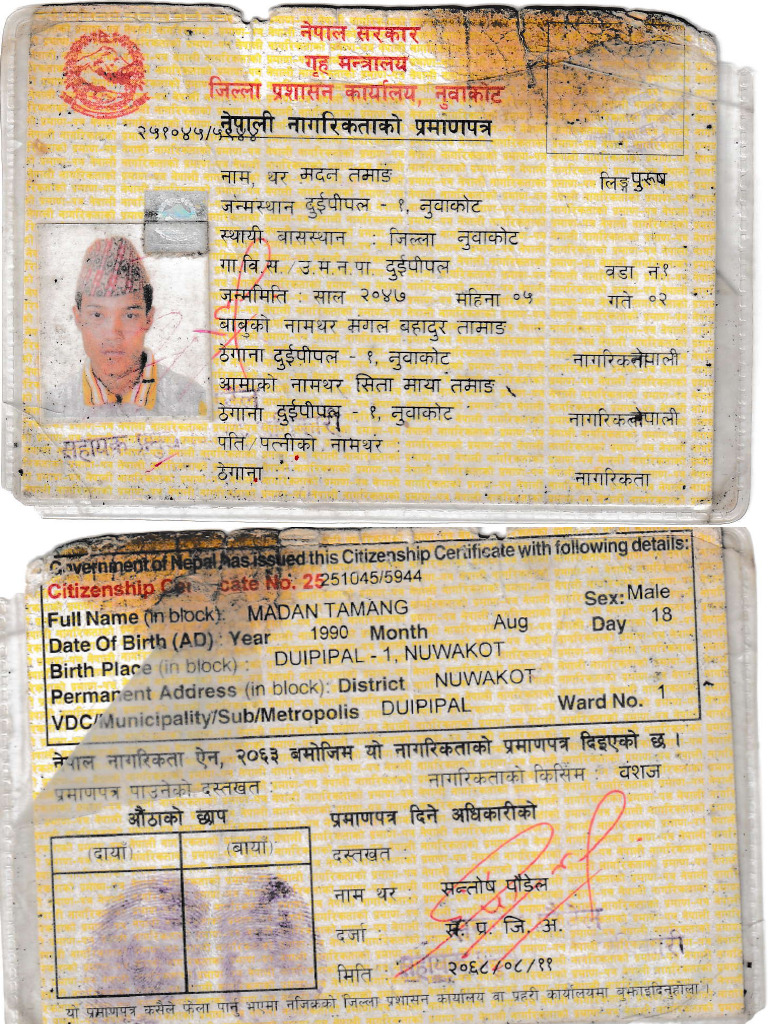 नेपाल सरकार
गृह मन्त्रालय
जिल्ला प्रशासन कार्यालय, नुवाकोट
नेपाली नागरिकताको प्रमाणपत्र
२५१०४५/५९४४
नाम, थर मदन तमाङ लिङ्ग पुरूष
जन्मस्थान दुईपीपल - १, नुवाकोट
स्थायी बासस्थान : जिल्ला नुवाकोट
गा.वि.स./उ.म.न.पा. दुईपीपल वडा नं १
जन्ममिति : साल २०४७ महिना ०५ गते ०२
बाबुको नामथर मंगल बहादुर तामाङ
ठेगाना दुईपीपल - १, नुवाकोट नागरिकता नेपाली
आमाको नामथर सिता माया तमाङ
ठेगाना दुईपीपल - १, नुवाकोट नागरिकता नेपाली
पति/पत्नीको नामथर
ठेगाना नागरिकता
सहायक
Government of Nepal has issued this Citizenship Certificate with following details:
Citizenship Certificate No. 25 251045/5944
Full Name (in block): MADAN TAMANG Sex: Male
Date Of Birth (AD) : Year 1990 Month Aug Day 18
Birth Place (in block) : DUIPIPAL - 1, NUWAKOT
Permanent Address (in block): District NUWAKOT
VDC/Municipality/Sub/Metropolis DUIPIPAL Ward No. 1
नेपाल नागरिकता ऐन, २०६३ बमोजिम यो नागरिकताको प्रमाणपत्र दिइएको छ ।
प्रमाणपत्र पाउनेको दस्तखत : नागरिकताको किसिम : वंशज
औंठाको छाप प्रमाणपत्र दिने अधिकारीको
(दायाँ) (बायाँ) दस्तखत :
नाम थर : सन्तोष पौडेल
दर्जा : स. प्र. जि. अ.
मिति : २०६८/०८/११
यो प्रमाणपत्र कसैले फेला पारे भएमा नजिकको जिल्ला प्रशासन कार्यालय वा प्रहरी कार्यालयमा बुझाइदिनुहोला ।